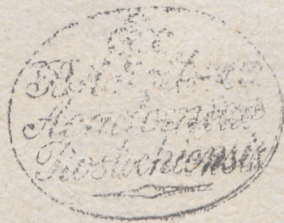 Ex
Bibliotheca
Academica
Rostochiensis